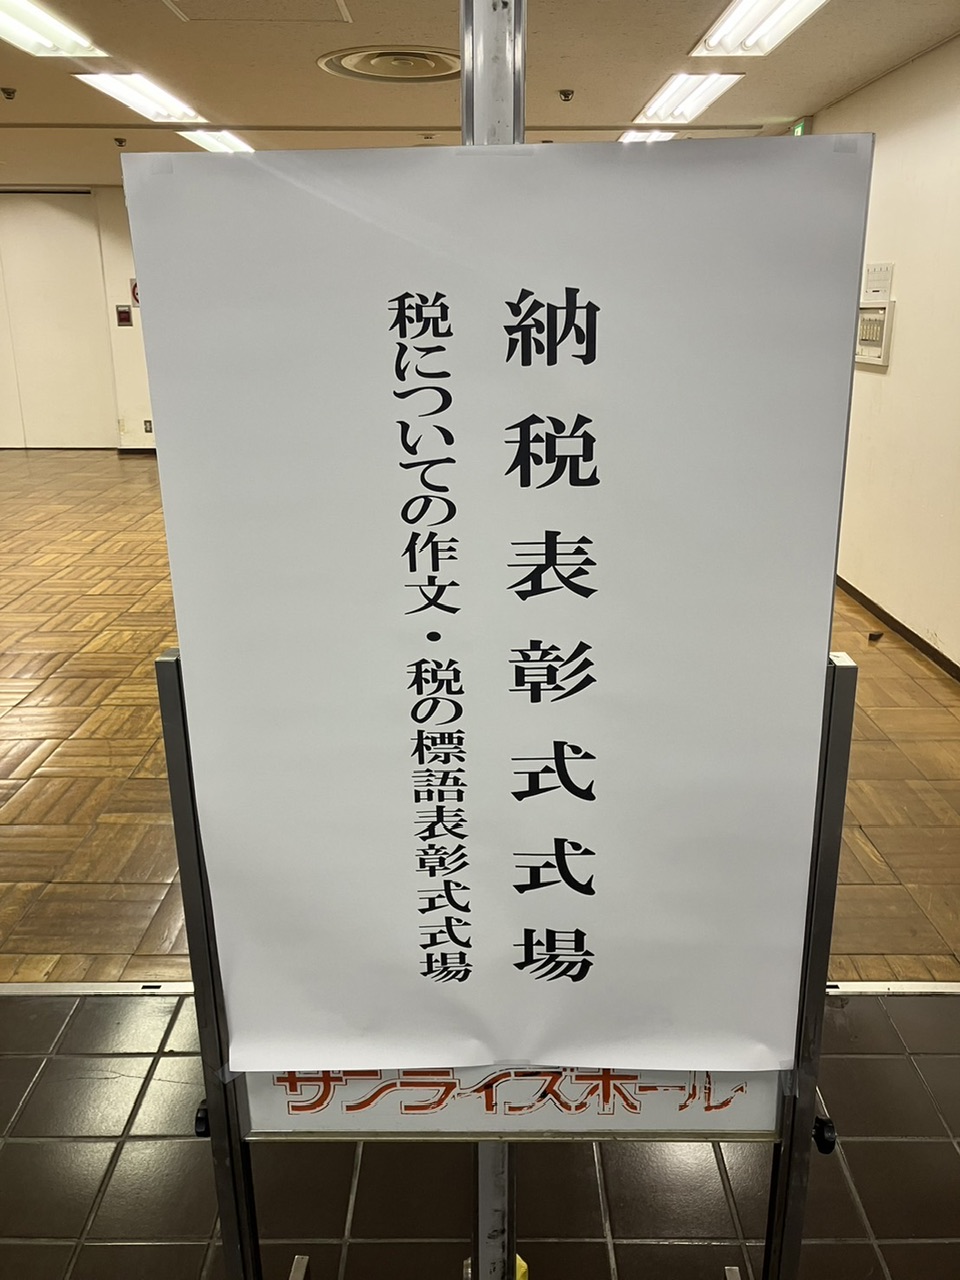 納税表彰式式場
税についての作文・税の標語表彰式式場
サンライズホール